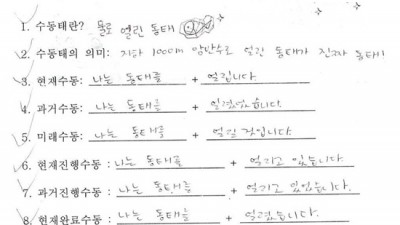 1. 수동태란? 물로 얼린 동태
2. 수동태의 의미: 지하 100m 암반수로 얼린 동태가 진짜 동태!
3. 현재수동: 나는 동태를 + 얼립니다.
4. 과거수동: 나는 동태를 + 얼렸었습니다.
5. 미래수동: 나는 동태를 + 얼릴 겁니다.
6. 현재진행수동: 나는 동태를 + 얼리고 있습니다.
7. 과거진행수동: 나는 동태를 + 얼리고 있었습니다.
8. 현재완료수동: 나는 동태를 + 얼렸습니다.